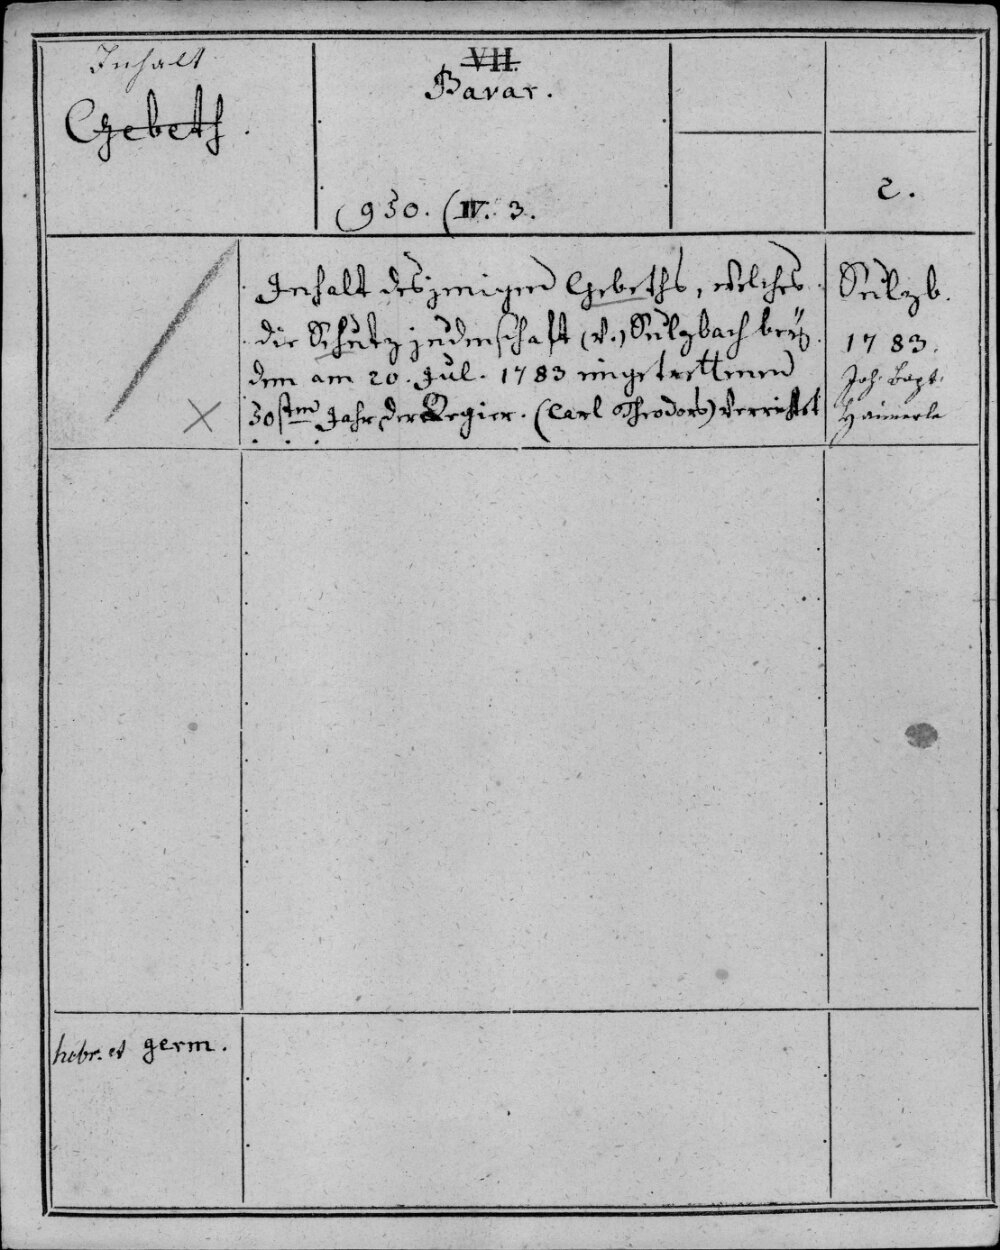 Inhalt
Gebeth.
VII.
Bavar.
930. (IV. 3.
2.
Inhalt desjenigen Gebeths, welches
die Schutzjudenschaft (v.) Sulzbach bey
dem am 20. Jul. 1783 eingetrettenen
50stem Jahr der Regier. (Carl Theodors) verrichtet
...
Sulzb.
1783.
Joh. Bapt.
Haimerle
hebr. et germ.